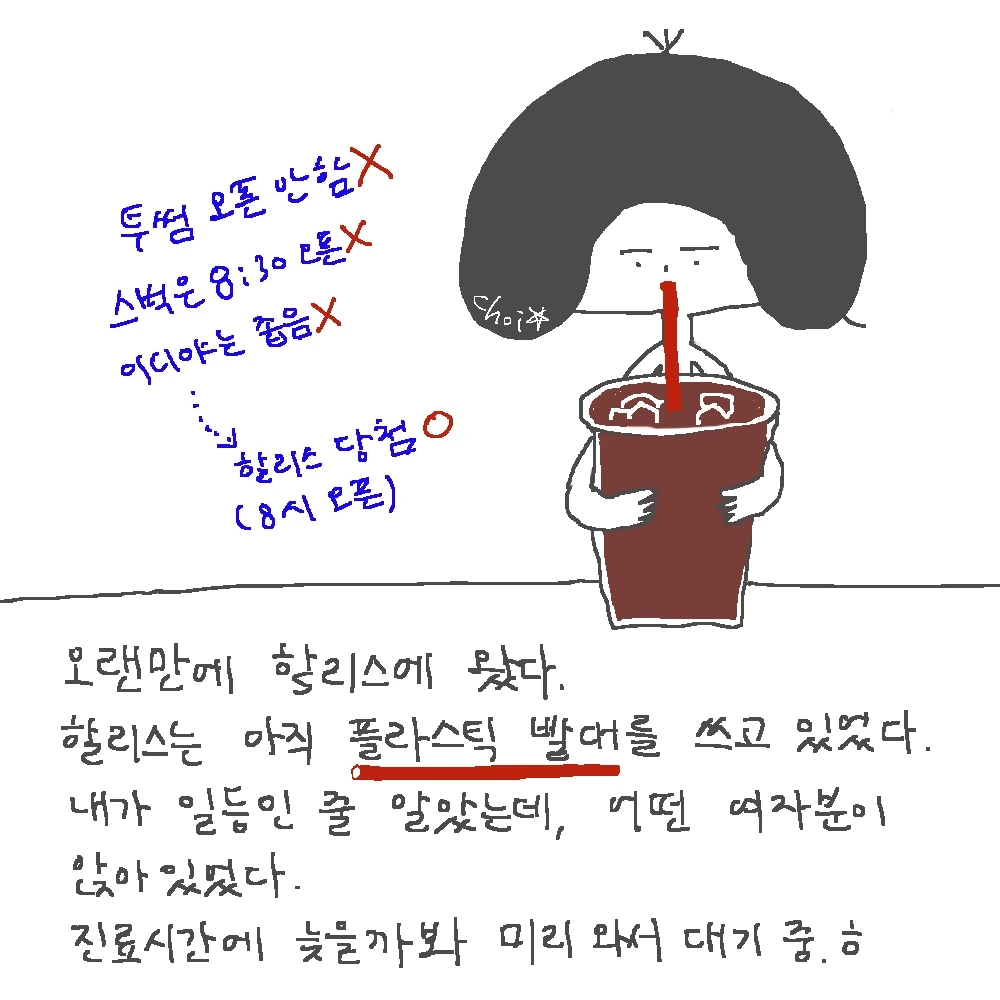 투썸 오픈 안함X
스벅은 8:30 오픈X
이디야는 좁음X
할리스 당첨O
(8시 오픈)
choi☆
오랜만에 할리스에 왔다.
할리스는 아직 플라스틱 빨대를 쓰고 있었다.
내가 일등인 줄 알았는데, 어떤 여자분이
앉아있었다.
진료시간에 늦을까봐 미리 와서 대기 중.ㅎ